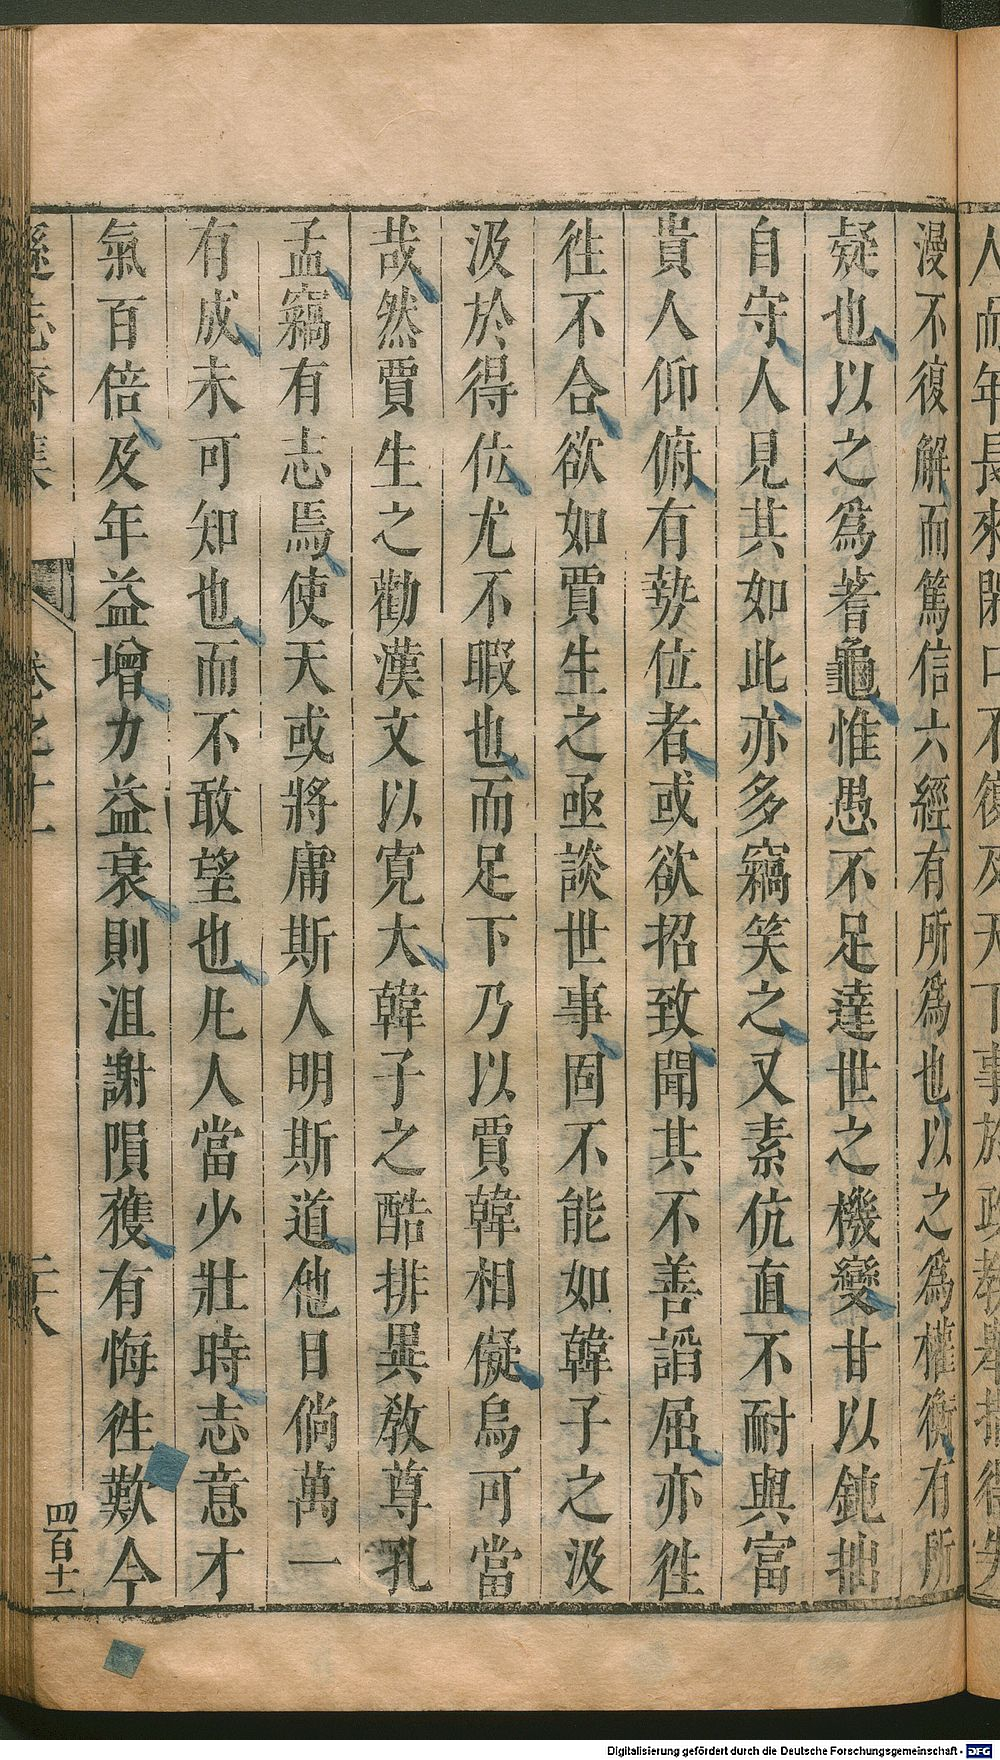 人而年長來閑口不復及天下事於政教
漫不復解而篤信六經有所爲也以之爲權衡有所
疑也以之爲蓍龜惟愚不足達世之機變甘以鈍拙
自守人見其如此亦多竊笑之又素伉直不耐與富
貴人仰俯有勢位者或欲招致聞其不善謟屈亦徃
徃不合欲如賈生之亟談世事固不能如韓子之汲
汲於得位尤不暇也而足下乃以賈韓相儗烏可當
哉然賈生之勸漢文以寬大韓子之酷排異教尊孔
孟竊有志焉使天或將庸斯人明斯道他日倘萬一
有成未可知也而不敢望也凡人當少壯時志意才
氣百倍及年益增力益衰則沮謝隕穫有悔徃歎今
遜志齋集 卷之十一 二十八
四百十一
Digitalisierung gefördert durch die Deutsche Forschungsgemeinschaft - DFG